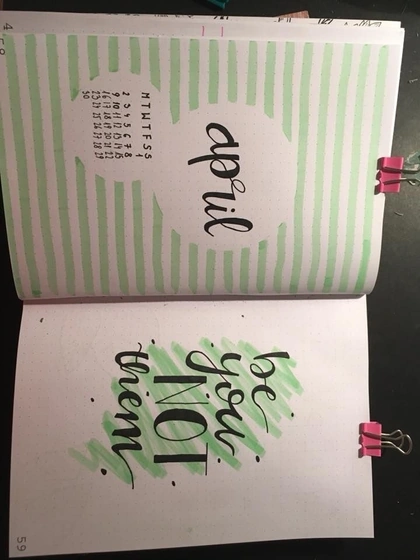 april
M T W T F S S
1
2 3 4 5 6 7 8
9 10 11 12 13 14 15
16 17 18 19 20 21 22
23 24 25 26 27 28 29
30
be
you
NOT
them
59